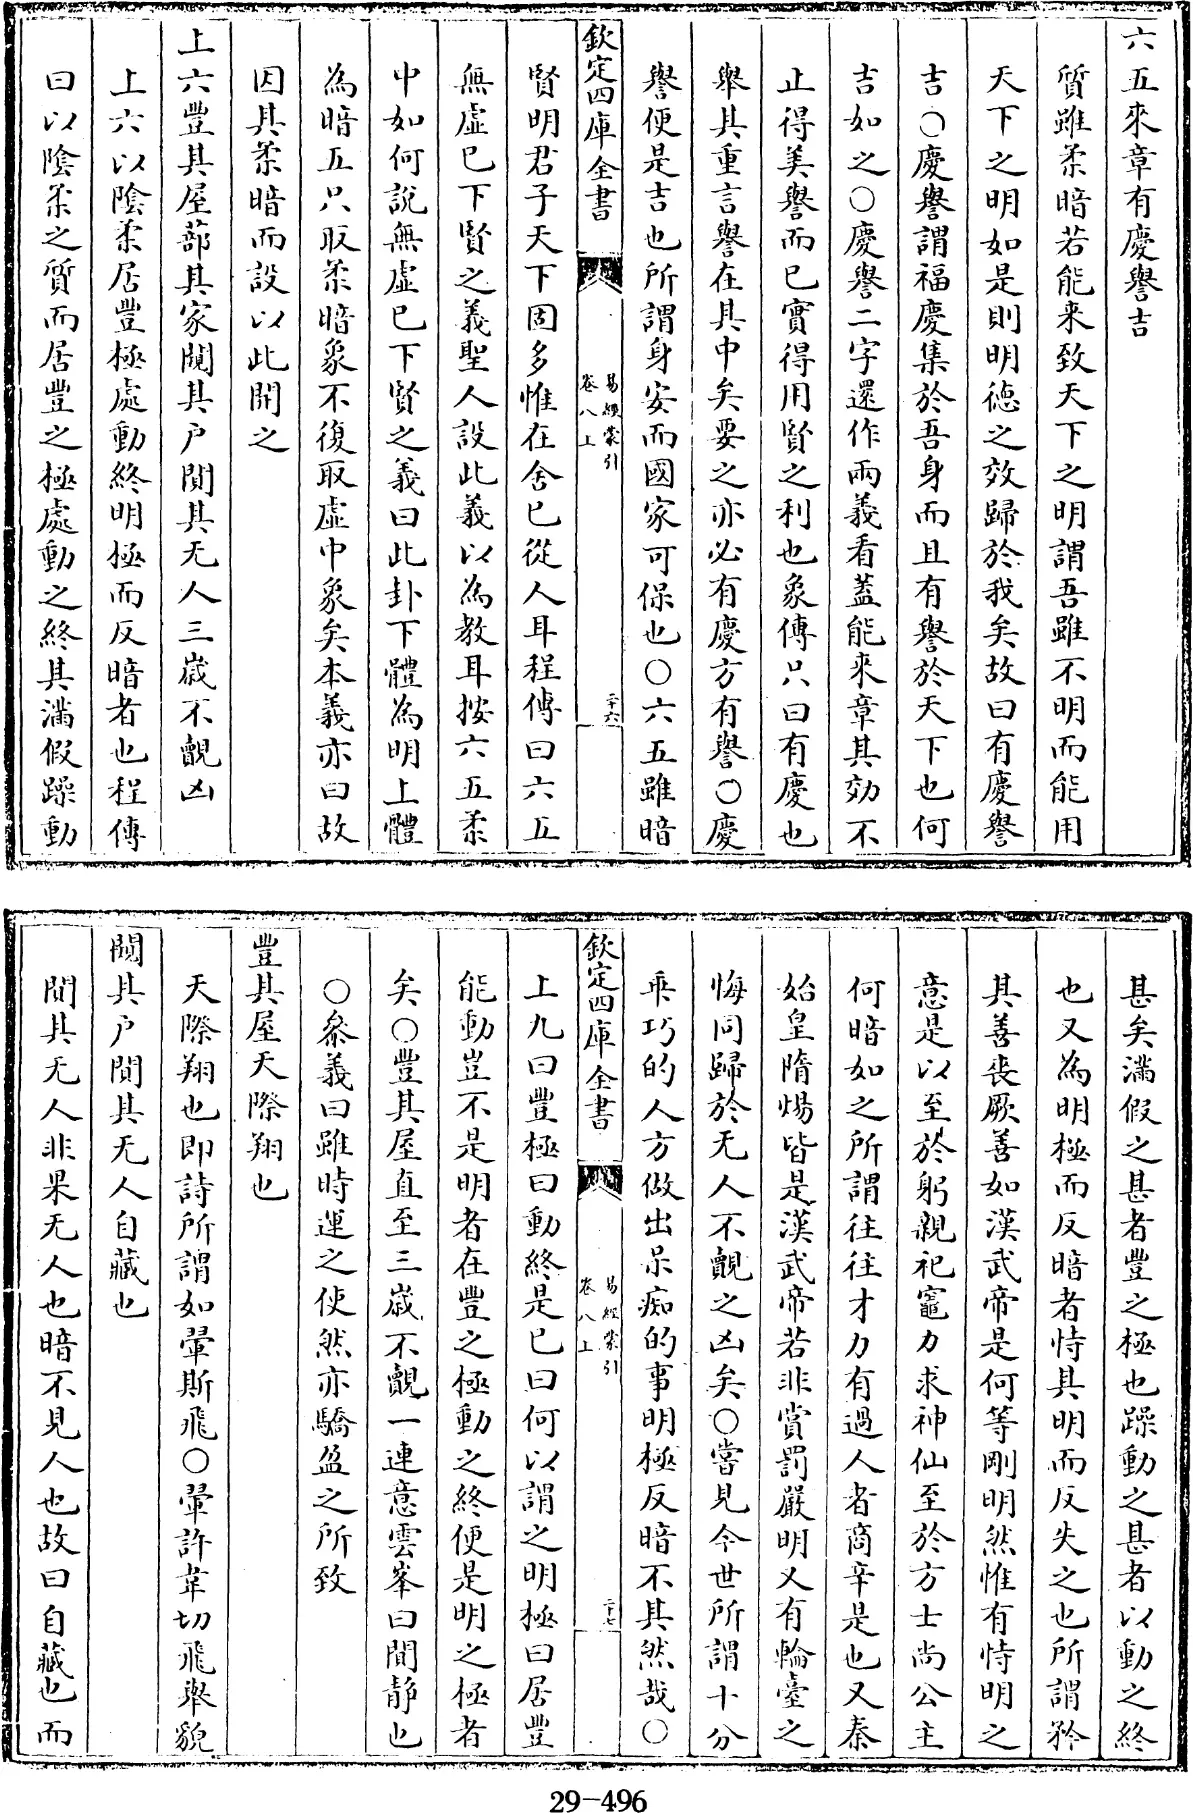 六五來章有慶譽吉
質雖柔暗若能來致天下之明謂吾雖不明而能用
天下之明如是則明德之效歸於我矣故曰有慶譽
吉○慶譽謂福慶集於吾身而且有譽於天下也何
吉如之○慶譽二字還作兩義看蓋能來章其効不
止得美譽而已實得用賢之利也象傳只曰有慶也
舉其重言譽在其中矣要之亦必有慶方有譽○慶
譽便是吉也所謂身安而國家可保也○六五雖暗
欽定四庫全書
易經蒙引
卷八上
二十六
賢明君子天下固多惟在舍已從人耳程傳曰六五
無虛已下賢之義聖人設此義以為教耳按六五柔
中如何說無虛已下賢之義曰此卦下體為明上體
為暗五只取柔暗象不復取虛中象矣本義亦曰故
因其柔暗而設以此開之
上六豐其屋蔀其家闚其户閴其无人三歲不覿凶
上六以陰柔居豐極處動終明極而反暗者也程傳
曰以陰柔之質而居豐之極處動之終其滿假躁動
甚矣滿假之甚者豐之極也躁動之甚者以動之終
也又為明極而反暗者恃其明而反失之也所謂矜
其善喪厥善如漢武帝是何等剛明然惟有恃明之
意是以至於躬親祀竈力求神仙至於方士尚公主
何暗如之所謂往往才力有過人者商辛是也又秦
始皇隋煬皆是漢武帝若非賞罰嚴明又有輪臺之
悔同歸於无人不覿之凶矣○嘗見今世所謂十分
乖巧的人方做出呆痴的事明極反暗不其然哉○
欽定四庫全書
易經蒙引
卷八上
二十七
上九曰豐極曰動終是已曰何以謂之明極曰居豐
能動豈不是明者在豐之極動之終便是明之極者
矣○豐其屋直至三歲不覿一連意雲峯曰閴静也
○叅義曰雖時運之使然亦驕盈之所致
豐其屋天際翔也
天際翔也即詩所謂如翬斯飛○翬許韋切飛舉貌
闚其户閴其无人自藏也
閴其无人非果无人也暗不見人也故曰自藏也而
29-496